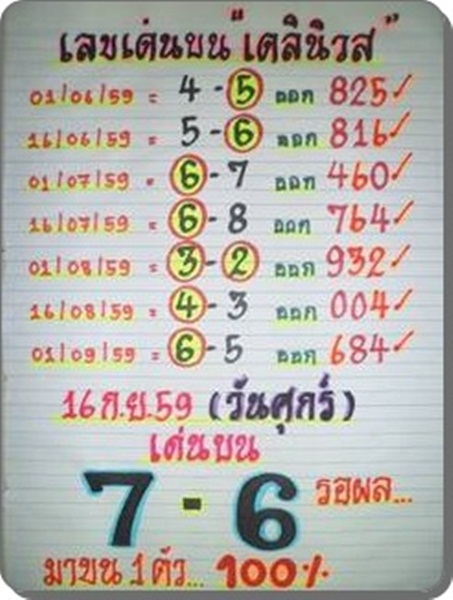 เลขเด่นบน "เดลินิวส"
01/06/59 = 4 - 5 ออก 825 ✓
16/06/59 = 5 - 6 ออก 816 ✓
01/07/59 = 6 - 7 ออก 460 ✓
16/07/59 = 6 - 8 ออก 764 ✓
01/08/59 = 3 - 2 ออก 932 ✓
16/08/59 = 4 - 3 ออก 004 ✓
01/09/59 = 6 - 5 ออก 684 ✓
16 ก.ย. 59 (วันศุกร์)
เด่นบน
7 - 6 รอผล...
มาบน 1 ตัว... 100%